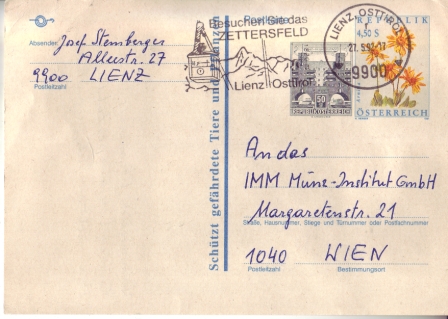 Absender
Josef Stemberger
Alleestr. 27
9900 LIENZ
Postleitzahl
Schützt gefährdete Tiere und Pflanzen
Besuchen Sie das
ZETTERSFELD
Lienz Osttirol
LIENZ, OSTTIROL
9900
REPUBLIK
4,50 S
ÖSTERREICH
50
REPUBLIK ÖSTERREICH
An das
IMM Münz-Institut GmbH
Margaretenstr. 21
Straße, Hausnummer, Stiege und Türnummer oder Postfachnummer
1040 WIEN
Postleitzahl Bestimmungsort